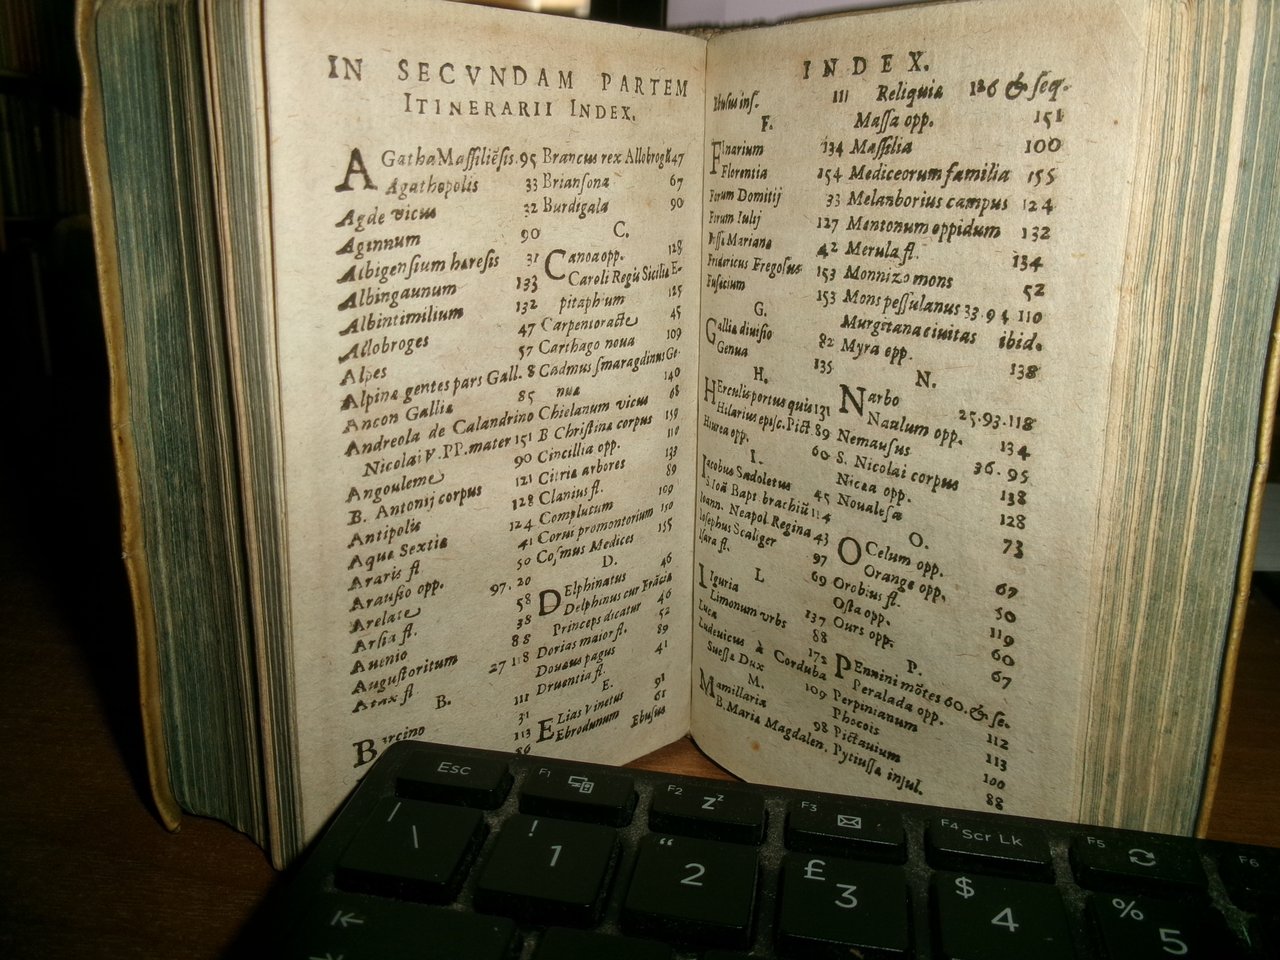 IN SECVNDAM PARTEM
ITINERARII INDEX.
AGatha Maſſiliẽſis. 95
Agathopolis 33
Agde vicus 32
Aginnum 90
Albigenſium hareſis 31
Albingaunum 133
Albintimilium 132
Allobroges 47
Alpes 57
Alpinæ gentes pars Gall. 8
Ancon Gallia 85
Andreola de Calandrino
Nicolai V. PP. mater 151
Angouleme 90
B. Antonij corpus 121
Antipolis 128
Aqua Sextia 124
Araris fl 41
Arauſio opp. 50
Arelate 97. 20
Arſia fl. 58
Auenio 38
Auguſtoritum 88
Atax fl. 27 118
B.
Barcino 111
31
113
86
Brancus rex Allobrog 47
Brianſona 67
Burdigala 90
C.
Canoa opp. 128
Caroli Regis Siciliæ E-
pitaphium 125
Carpentoracte 45
Carthago noua 109
Cadmus ſmaragdinus Ge-
nuæ 140
Chielanum vicus 68
B Chriſtinæ corpus 159
Cincillia opp. 110
Citriæ arbores 133
Clanius fl. 89
Complutum 109
Corus promontorium 150
Coſmus Medices 155
D.
DElphinatus 46
Delphinus cur Frãciæ
Princeps dicatur 46
Dorias maior fl. 52
Douæus pagus 89
Druentia fl. 41
E.
ELias Vinetus 91
Ebrodunum 61
Ebuſus
INDEX.
Ebuſus inſ. 111
F.
FInarium 134
Florentia 154
Forum Domitij 33
Forum Iulij 127
Foſſæ Marianæ 42
Fredericus Fregoſus 153
Fuſacium 153
G.
Gallia diuiſio 82
Genua 135
H.
HErculis portus quis 131
Hilarius epiſc. Pict. 89
Hiurea opp. 60
I.
Iacobus Sadoletus 45
S. Ioã Bapt brachiũ 114
Ioann. Neapol Regina 43
Ioſephus Scaliger 97
Iſara fl. 69
L
LIguria 137
Limonum vrbs 88
Luca 172
Ludouicus à Corduba
Sueſſæ Dux 109
M.
Mamillaria 98
B. Maria Magdalen.
Reliquiæ 126 & ſeq.
Maſſa opp. 151
Maſſilia 100
Mediceorum familia 155
Melanborius campus 124
Mentonum oppidum 132
Merula fl. 134
Monnizo mons 52
Mons peſſulanus 33. 94. 110
Murgitana ciuitas ibid.
Myra opp. 138
N.
NArbo 25. 93. 118
Naulum opp. 134
Nemauſus 36. 95
S. Nicolai corpus 138
Nicæa opp. 128
Noualeſæ 73
O.
OCelum opp. 67
Orange opp. 50
Orobius fl. 119
Oſta opp. 60
Ours opp. 67
P.
PEnnini mõtes 60. & ſe.
Peralada opp. 112
Perpinianum 113
Phoceis 100
Pictauium 88
Pytiuſſæ inſul.
Esc
F1
F2
Zz
F3
F4 Scr Lk
F5
F6
| \
! 1
“ 2
£ 3
$ 4
% 5